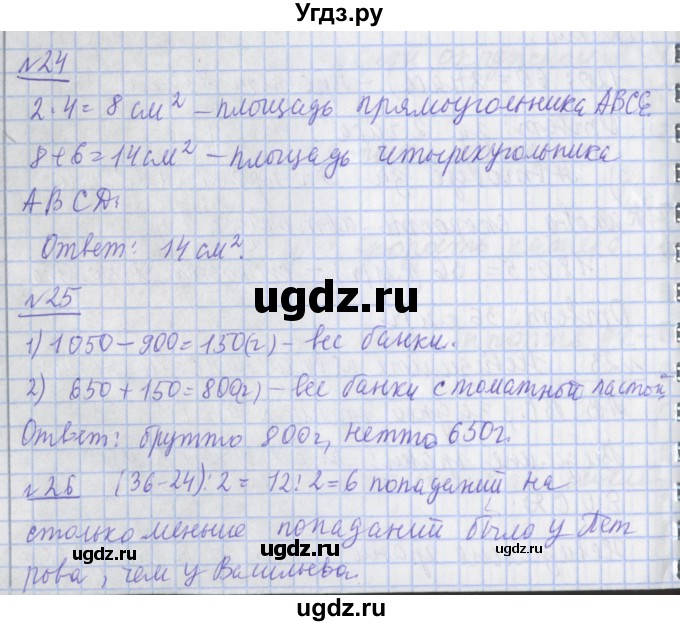 Угдз.ру
№24
2·4=8 см² – площадь прямоугольника ABCE.
8+6=14см² – площадь четырехугольника
ABCD.
Ответ: 14 см².
№25
ugdz.ru
1) 1050–900=150(г) – вес банки.
2) 650+150=800(г) – вес банки с томатной пастой
Ответ: брутто 800г, нетто 650г.
№26 (36-24):2= 12:2=6 попаданий на
столько меньше попаданий было у Пет
ugdz.ru ugdz.ru
рова, чем у Васильева.
ugdz.ru